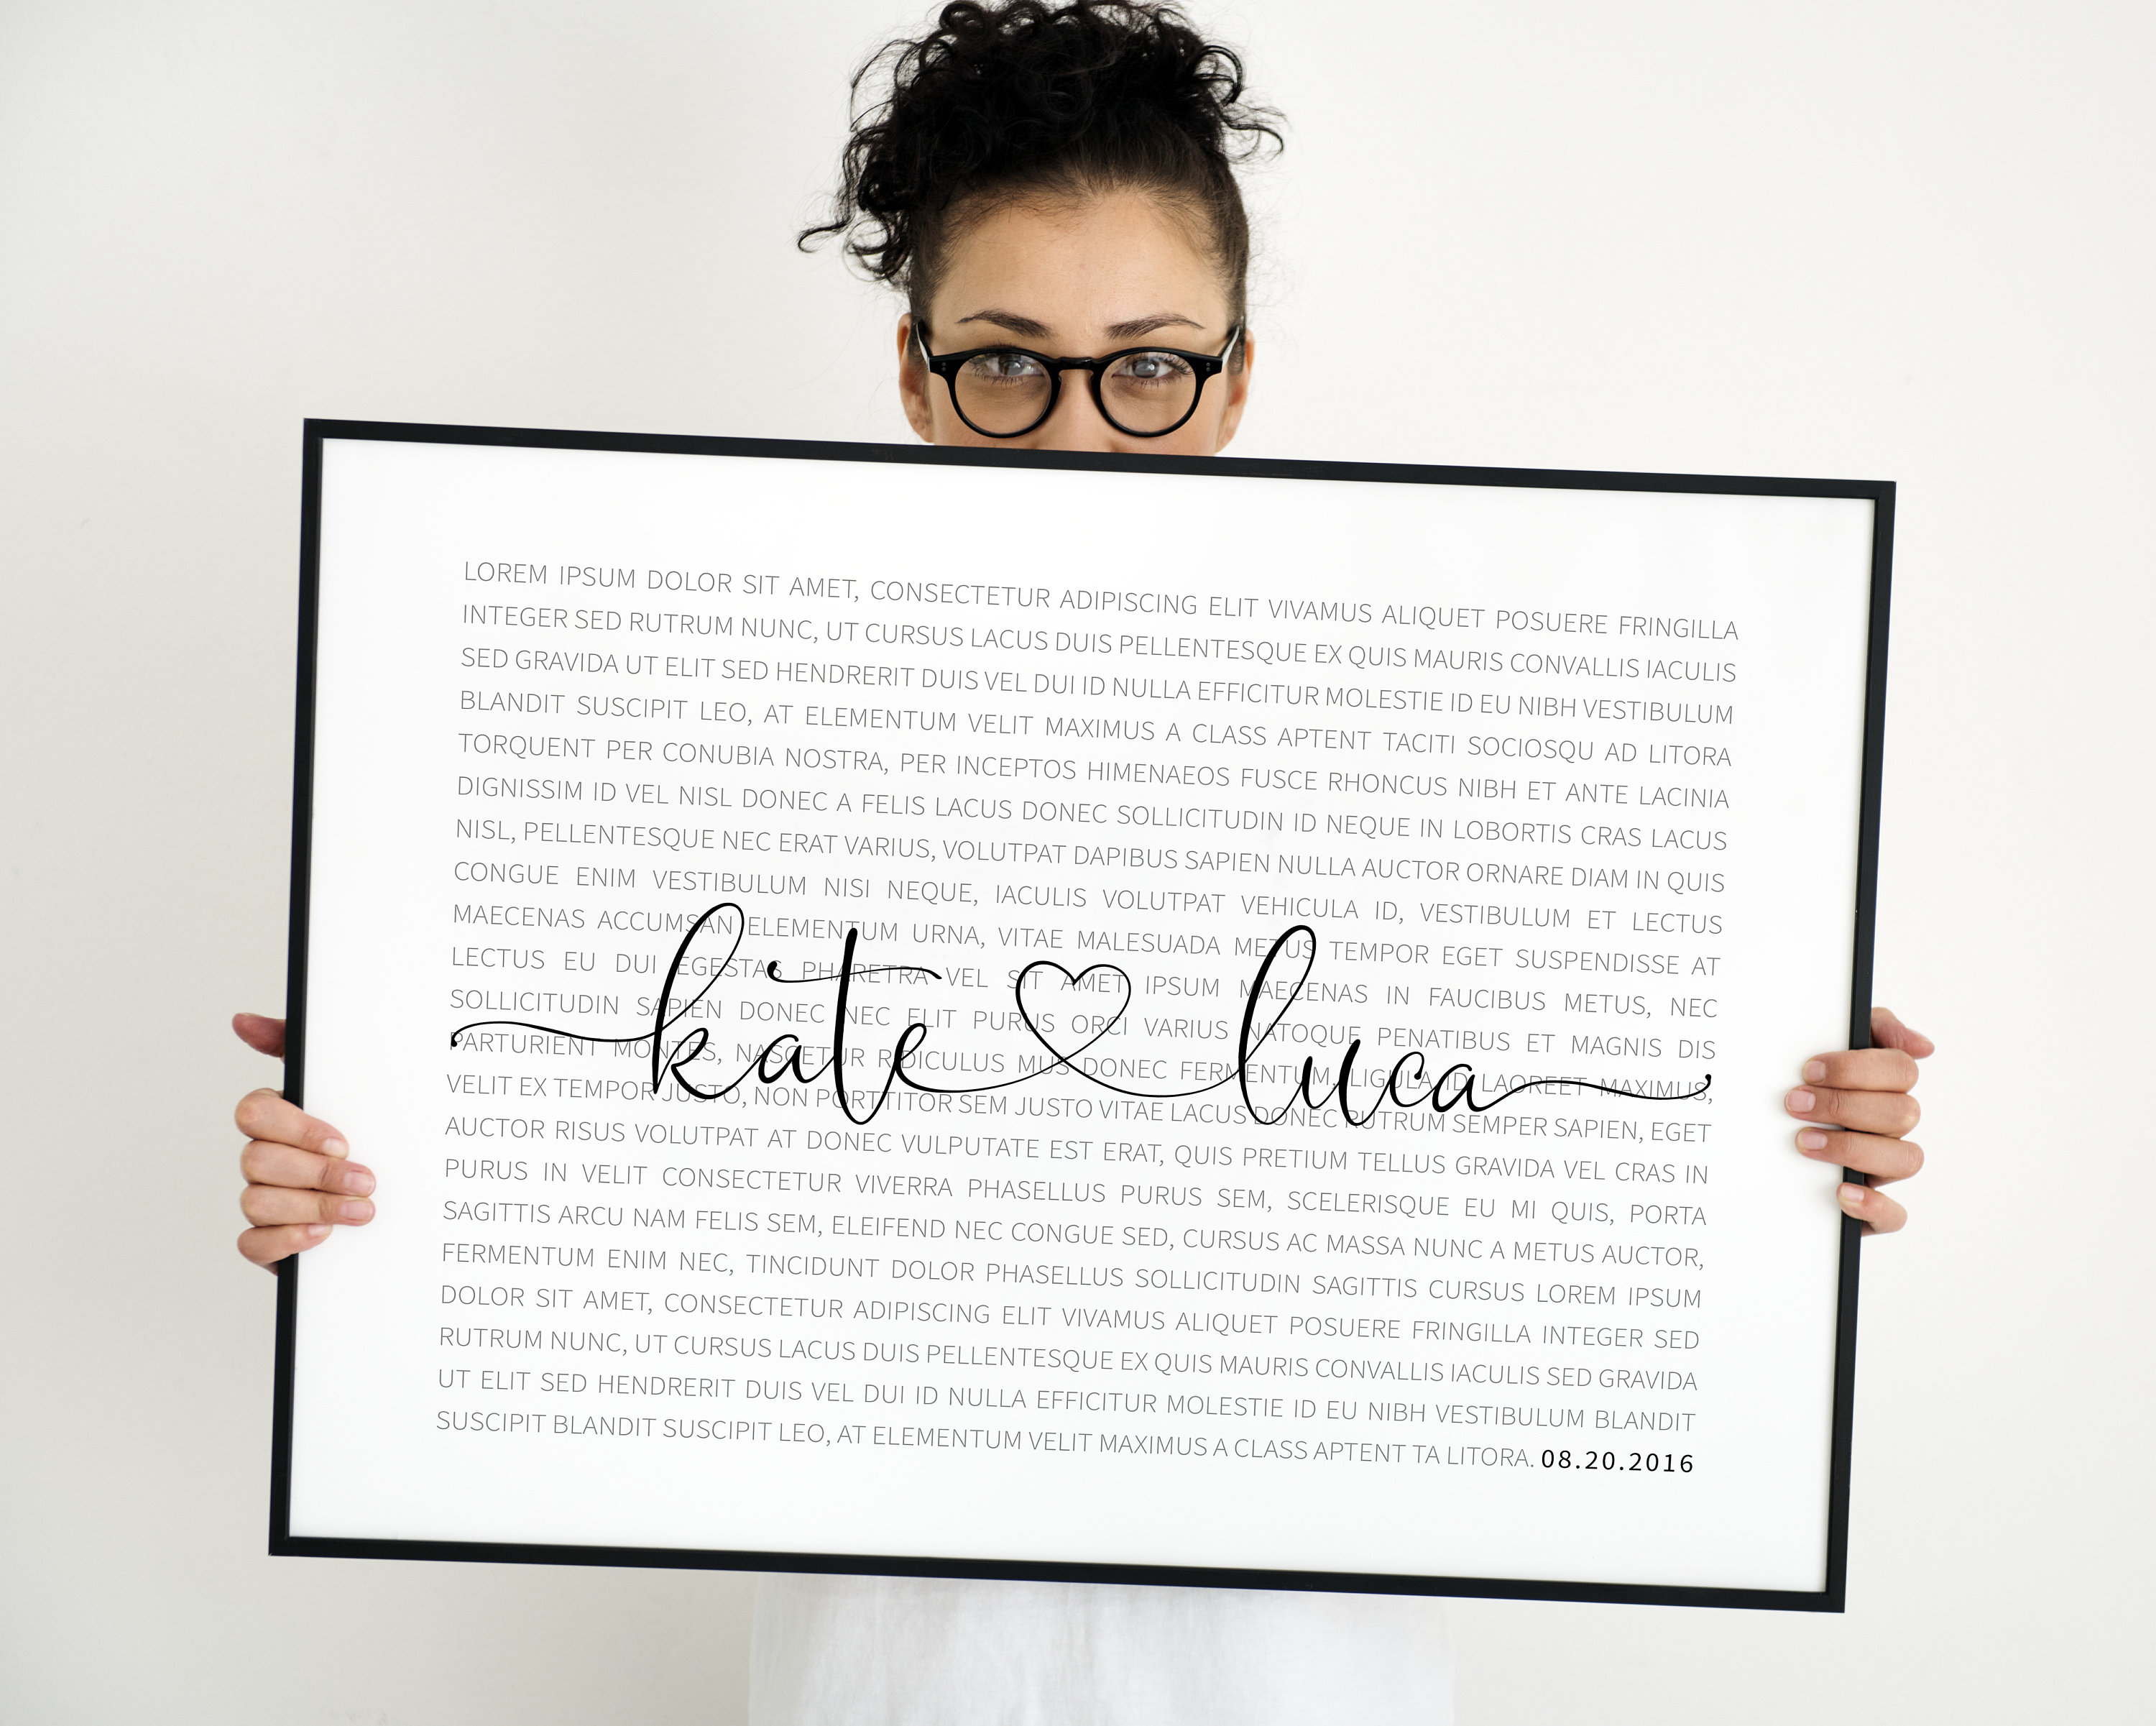 LOREM IPSUM DOLOR SIT AMET, CONSECTETUR ADIPISCING ELIT VIVAMUS ALIQUET POSUERE FRINGILLA
INTEGER SED RUTRUM NUNC, UT CURSUS LACUS DUIS PELLENTESQUE EX QUIS MAURIS CONVALLIS IACULIS
SED GRAVIDA UT ELIT SED HENDRERIT DUIS VEL DUI ID NULLA EFFICITUR MOLESTIE ID EU NIBH VESTIBULUM
BLANDIT SUSCIPIT LEO, AT ELEMENTUM VELIT MAXIMUS A CLASS APTENT TACITI SOCIOSQU AD LITORA
TORQUENT PER CONUBIA NOSTRA, PER INCEPTOS HIMENAEOS FUSCE RHONCUS NIBH ET ANTE LACINIA
DIGNISSIM ID VEL NISL DONEC A FELIS LACUS DONEC SOLLICITUDIN ID NEQUE IN LOBORTIS CRAS LACUS
NISL, PELLENTESQUE NEC ERAT VARIUS, VOLUTPAT DAPIBUS SAPIEN NULLA AUCTOR ORNARE DIAM IN QUIS
CONGUE ENIM VESTIBULUM NISI NEQUE, IACULIS VOLUTPAT VEHICULA ID, VESTIBULUM ET LECTUS
MAECENAS ACCUMSAN ELEMENTUM URNA, VITAE MALESUADA METUS TEMPOR EGET SUSPENDISSE AT
LECTUS EU DUI EGESTAS PHARETRA VEL SIT AMET IPSUM MAECENAS IN FAUCIBUS METUS, NEC
SOLLICITUDIN SAPIEN DONEC NEC ELIT PURUS ORCI VARIUS NATOQUE PENATIBUS ET MAGNIS DIS
kate luca
PARTURIENT MONTES, NASCETUR RIDICULUS MUS DONEC FERMENTUM, LIGULA ID LAOREET MAXIMUS,
VELIT EX TEMPOR JUSTO, NON PORTTITOR SEM JUSTO VITAE LACUS DONEC RUTRUM SEMPER SAPIEN, EGET
AUCTOR RISUS VOLUTPAT AT DONEC VULPUTATE EST ERAT, QUIS PRETIUM TELLUS GRAVIDA VEL CRAS IN
PURUS IN VELIT CONSECTETUR VIVERRA PHASELLUS PURUS SEM, SCELERISQUE EU MI QUIS, PORTA
SAGITTIS ARCU NAM FELIS SEM, ELEIFEND NEC CONGUE SED, CURSUS AC MASSA NUNC A METUS AUCTOR,
FERMENTUM ENIM NEC, TINCIDUNT DOLOR PHASELLUS SOLLICITUDIN SAGITTIS CURSUS LOREM IPSUM
DOLOR SIT AMET, CONSECTETUR ADIPISCING ELIT VIVAMUS ALIQUET POSUERE FRINGILLA INTEGER SED
RUTRUM NUNC, UT CURSUS LACUS DUIS PELLENTESQUE EX QUIS MAURIS CONVALLIS IACULIS SED GRAVIDA
UT ELIT SED HENDRERIT DUIS VEL DUI ID NULLA EFFICITUR MOLESTIE ID EU NIBH VESTIBULUM BLANDIT
SUSCIPIT BLANDIT SUSCIPIT LEO, AT ELEMENTUM VELIT MAXIMUS A CLASS APTENT TA LITORA. 08.20.2016